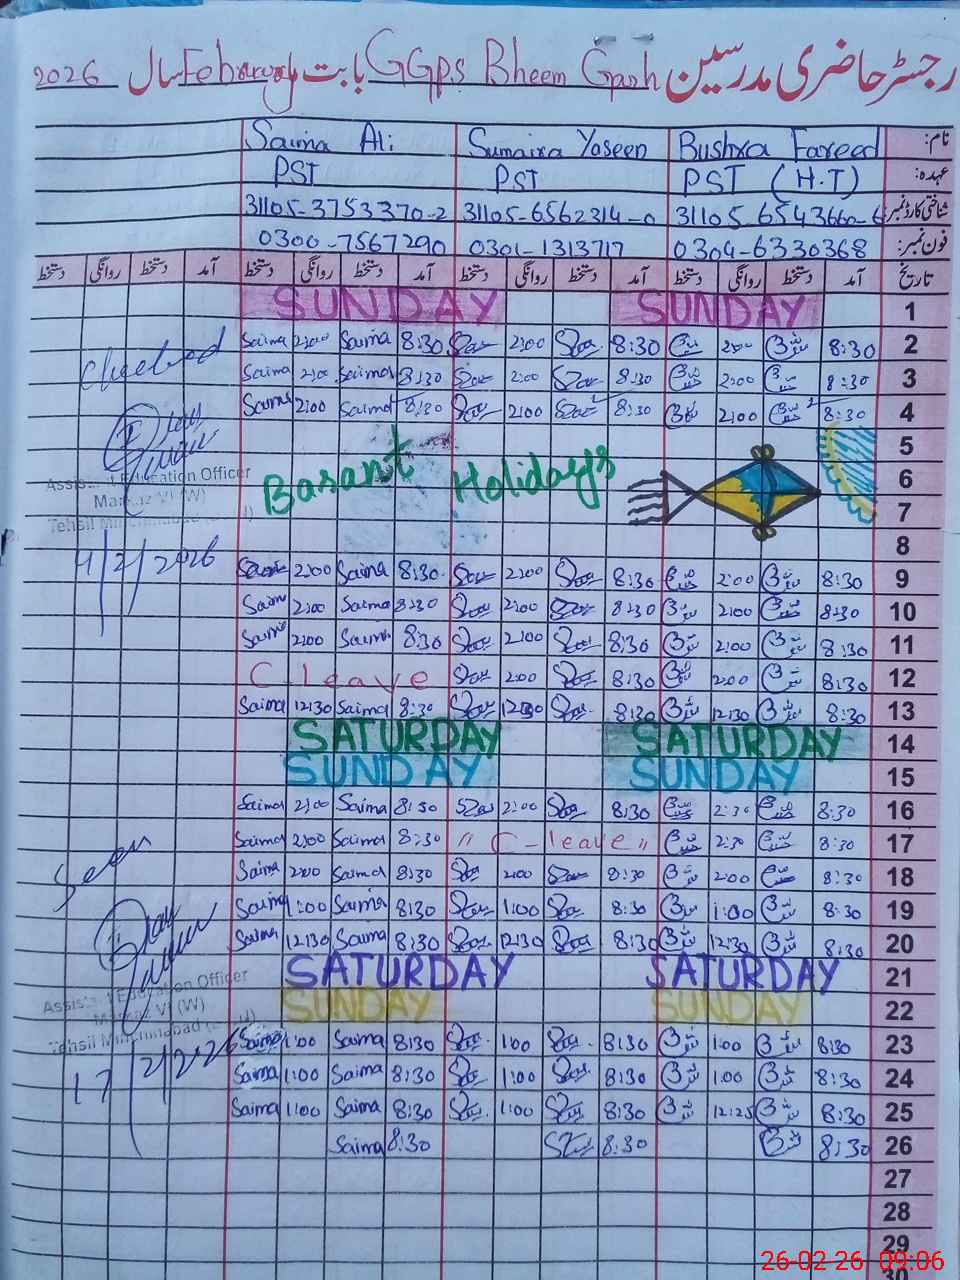 رجسٹر حاضری مدرسین GGPS Bheem Garh بابت ماہ February سال 2026
نام: Bushra Fareed Sumaira Yaseen Saima Ali
عہدہ: PST (H.T) PST PST
شناختی کارڈ نمبر: 31105-6543660-6 31105-6562314-0 31105-3753370-2
فون نمبر: 0304-6330368 0301-1313717 0300-7567290
تاریخ آمد دستخط روانگی دستخط آمد دستخط روانگی دستخط آمد دستخط روانگی دستخط آمد دستخط روانگی دستخط
1 SUNDAY SUNDAY
2 8:30 2:00 8:30 2:00 8:30 Saima 2:00 Saima
3 8:30 2:00 8:30 2:00 8:30 Saima 2:00 Saima
4 8:30 2:00 8:30 2:00 8:30 Saima 2:00 Saima
Checked
5
6 Basant Holidays
7
8
Assistant Education Officer
Markaz VI (W)
Tehsil Minchinabad
4/2/2026
9 8:30 2:00 8:30 2:00 8:30 Saima 2:00
10 8:30 2:00 8:30 2:00 8:30 Saima 2:00 Saima
11 8:30 2:00 8:30 2:00 8:30 Saima 2:00 Saima
12 8:30 2:00 8:30 2:00 C-leave
13 8:30 12:30 8:30 12:30 8:30 Saima 12:30 Saima
14 SATURDAY SATURDAY
15 SUNDAY SUNDAY
16 8:30 2:30 8:30 2:00 8:30 Saima 2:00 Saima
17 8:30 2:30 " C-leave " 8:30 Saima 2:00 Saima
18 8:30 2:00 8:30 2:00 8:30 Saima 2:00 Saima
19 8:30 1:00 8:30 1:00 8:30 Saima 1:00 Saima
20 8:30 12:30 8:30 12:30 8:30 Saima 12:30 Saima
Seen
21 SATURDAY SATURDAY
22 SUNDAY SUNDAY
Assistant Education Officer
Markaz VI (W)
Tehsil Minchinabad
17/2/2026
23 8:30 1:00 8:30 1:00 8:30 Saima 1:00 Saima
24 8:30 1:00 8:30 1:00 8:30 Saima 1:00 Saima
25 8:30 12:25 8:30 1:00 8:30 Saima 1:00 Saima
26 8:30 8:30 8:30 Saima
27
28
29
30
26-02-26 09:06